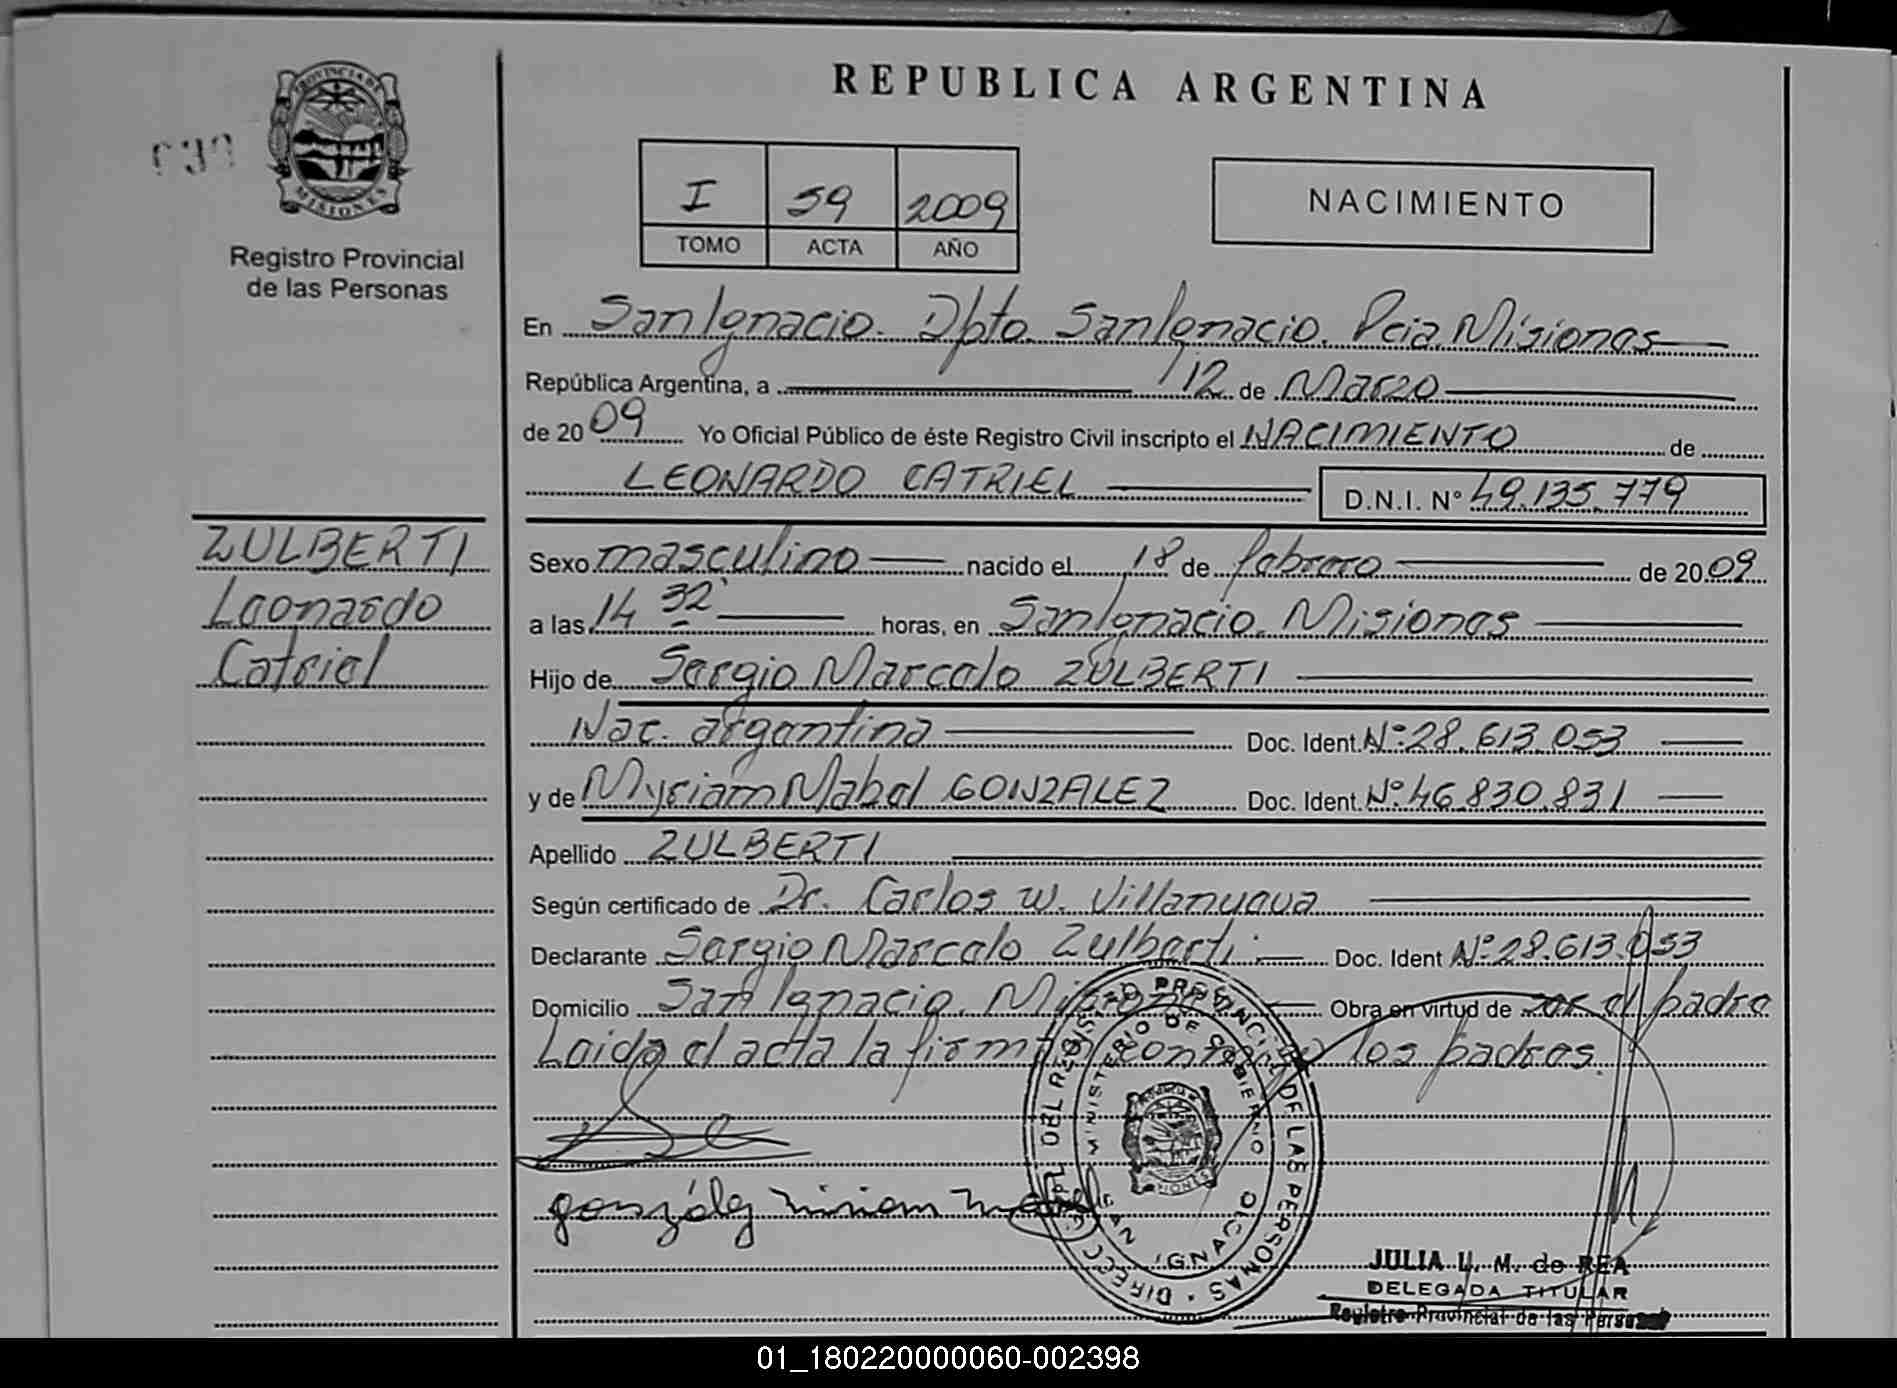 REPUBLICA ARGENTINA
PROVINCIA DE
MISIONES
Registro Provincial
de las Personas
I 59 2009
TOMO ACTA AÑO
NACIMIENTO
En San Ignacio. Dpto. San Ignacio. Pcia. Misiones
República Argentina, a 12 de Marzo
de 2009 Yo Oficial Público de éste Registro Civil inscripto el NACIMIENTO de
LEONARDO CATRIEL D.N.I. N° 49.135.779
ZULBERTI
Leonardo
Catriel
Sexo masculino nacido el 18 de febrero de 2009
a las 14 32' horas, en San Ignacio. Misiones
Hijo de Sergio Marcelo ZULBERTI
Nac. argentina Doc. Ident. N° 28.613.053
y de Myriam Mabel GONZALEZ Doc. Ident. N° 46.830.831
Apellido ZULBERTI
Según certificado de Dr. Carlos W. Villanueva
Declarante Sergio Marcelo Zulberti Doc. Ident N° 28.613.053
Domicilio San Ignacio. Misiones Obra en virtud de ser el padre
Leida el acta la firman conmigo los padres.
gonzález miriam mabel
DIRECC GRAL DEL REGISTRO PROVINCIAL DE LAS PERSONAS
MINISTERIO DE GOBIERNO
SAN IGNACIO
JULIA L. M. de REA
DELEGADA TITULAR
Registro Provincial de las Personas
01_180220000060-002398